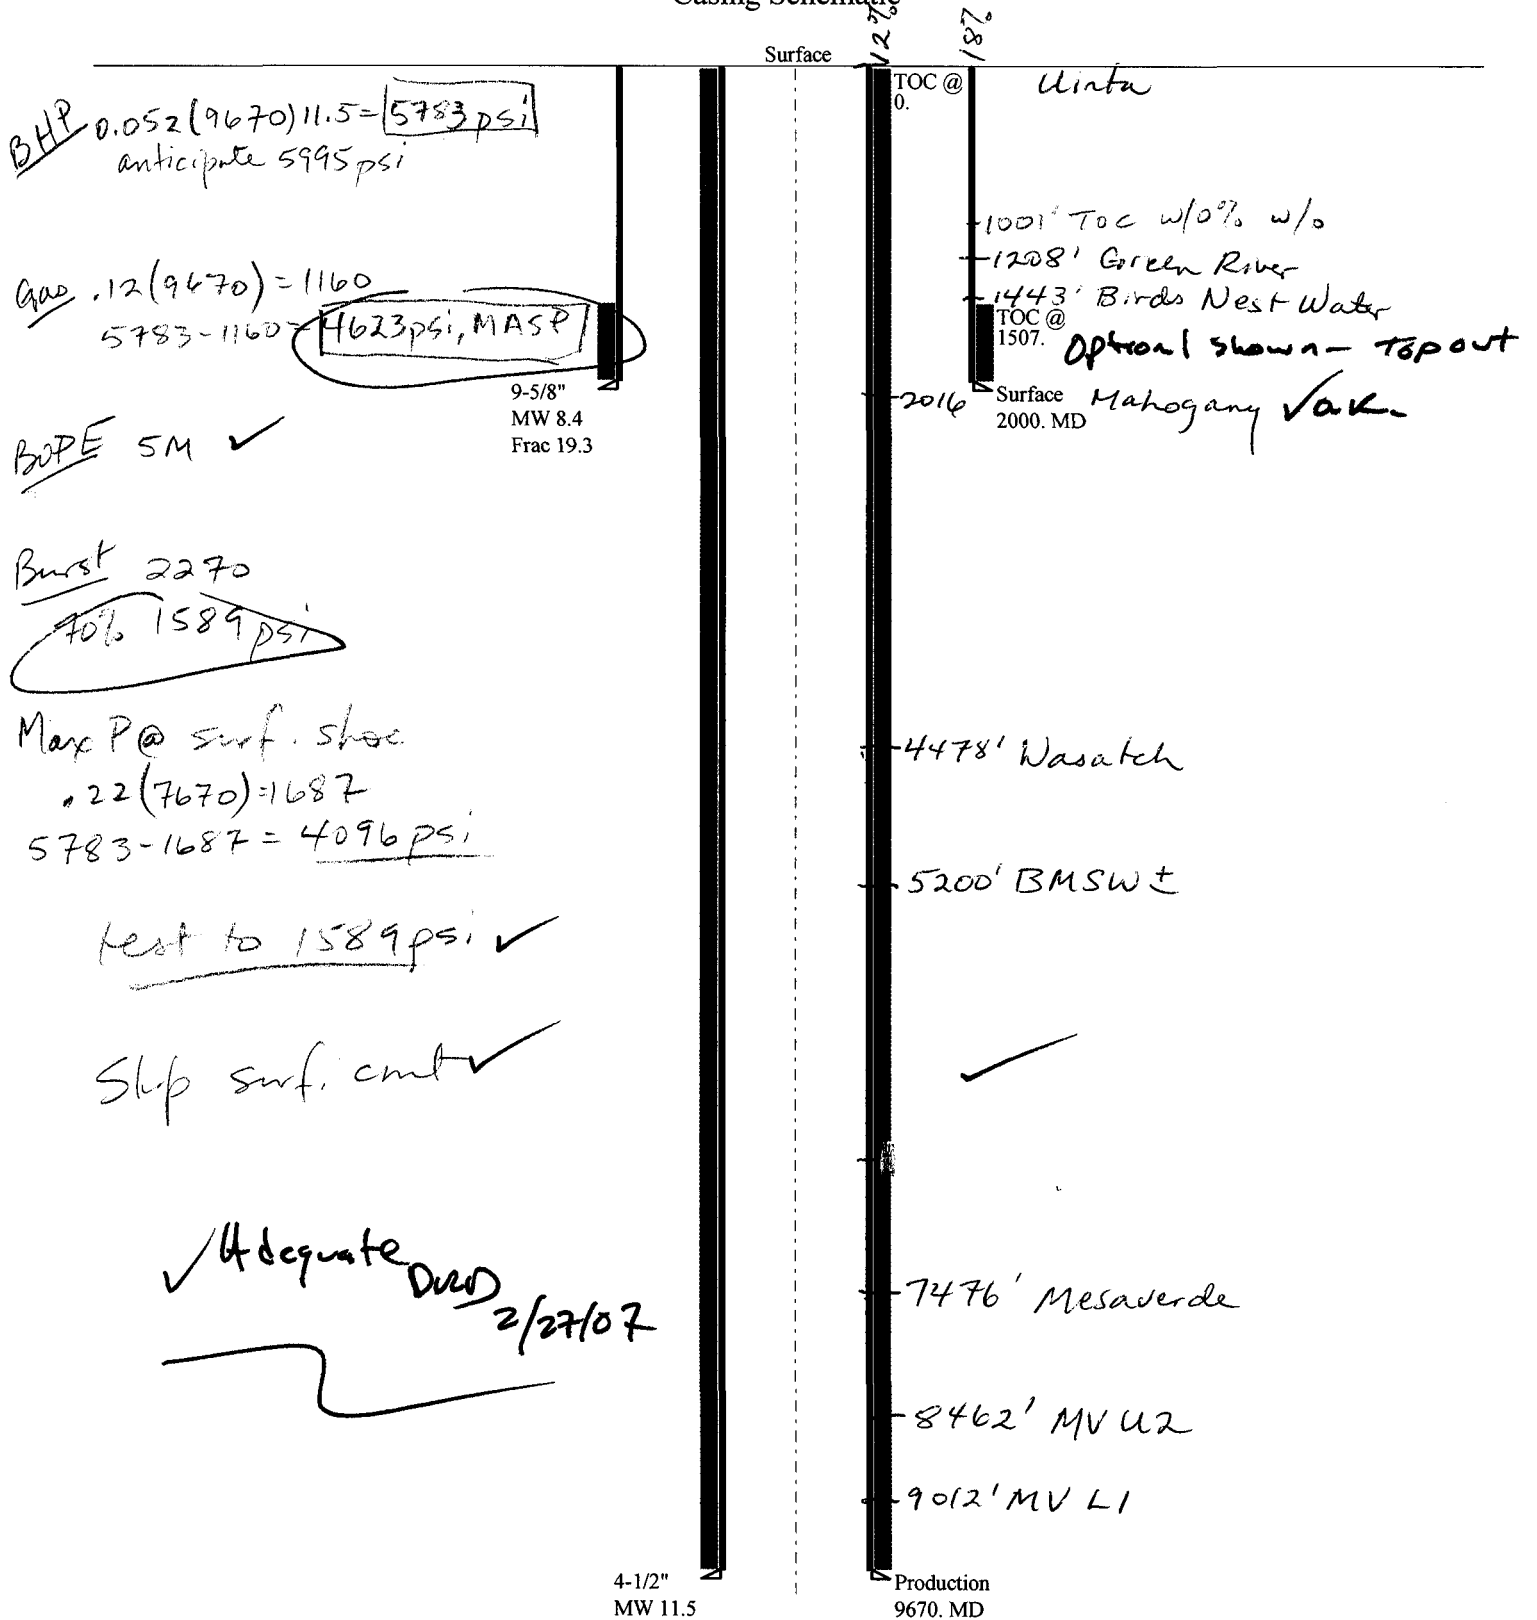 Casing Schematic
12%
18%
Surface
TOC @
0.
Uinta
BHP 0.052(9670)11.5=5783psi
anticipate 5995psi
1001' TOC w/0% w/o
1208' Green River
Gas .12(9670)=1160
1443' Birds Nest Water
5783-1160=4623psi, MASP
TOC @
1507.
Optional shown- Top out
9-5/8"
MW 8.4
Frac 19.3
2016
Surface
2000. MD
Mahogany ✓ o.k.
BOPE 5M ✓
Burst 2270
70% 1589psi
Max P @ surf. shoe
.22(7670)=1687
5783-1687=4096psi
4478' Wasatch
5200' BMSW ±
test to 1589psi ✓
surf. cmt ✓
✓
✓ Adequate DRD
2/27/07
7476' Mesaverde
8462' MV U2
9012' MV L1
4-1/2"
MW 11.5
Production
9670. MD